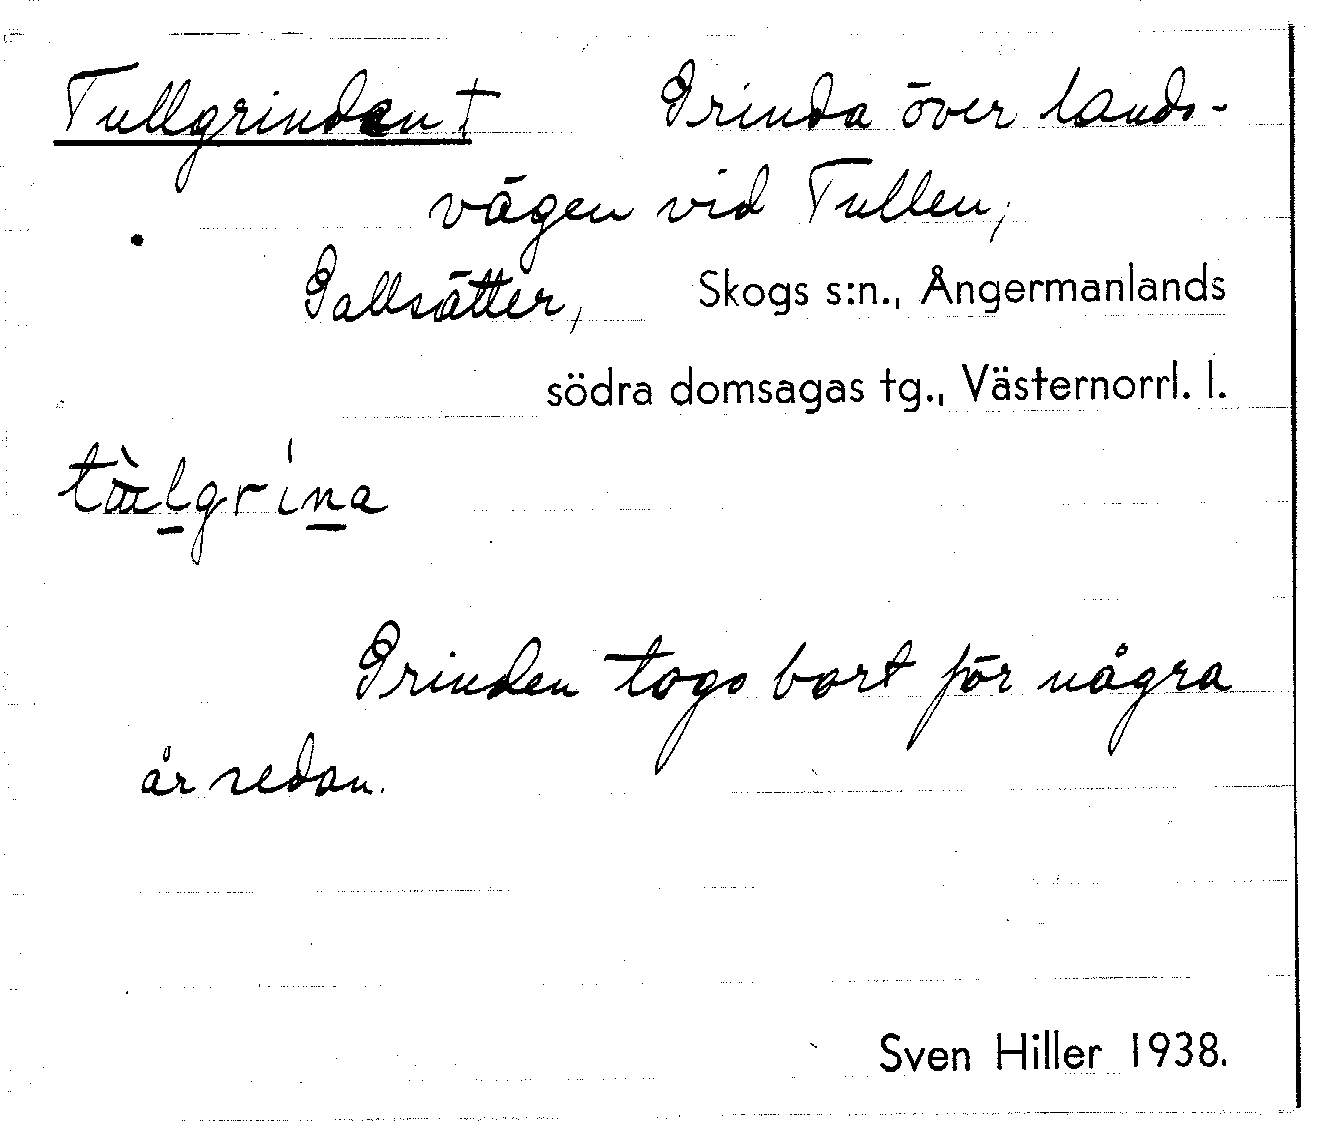 Tullgrinden † Grinda över lands-
vägen vid Tullen,
Gallsätter, Skogs s:n., Ångermanlands
södra domsagas tg., Västernorrl. l.
Grinden togs bort för några
år sedan.
Sven Hiller 1938.